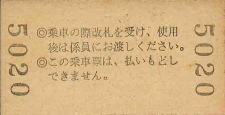 5020
◎乗車の際改札を受け、使用
後は係員にお渡しください。
◎この乗車票は、払いもどし
できません。
5020